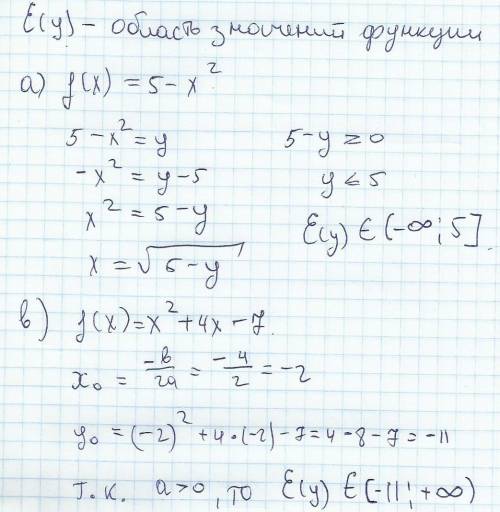 E(y) – область значений функции
а) f(x) = 5 – x²
5 – x² = y
5 – y ≥ 0
–x² = y – 5
y ≤ 5
x² = 5 – y
E(y) ∈ (–∞; 5]
x = √(5 – y)
в) f(x) = x² + 4x – 7
x₀ = –в/2a = –4/2 = –2
y₀ = (–2)² + 4·(–2) – 7 = 4 – 8 – 7 = –11
т.к. a > 0, то E(y) ∈ (–11; +∞)